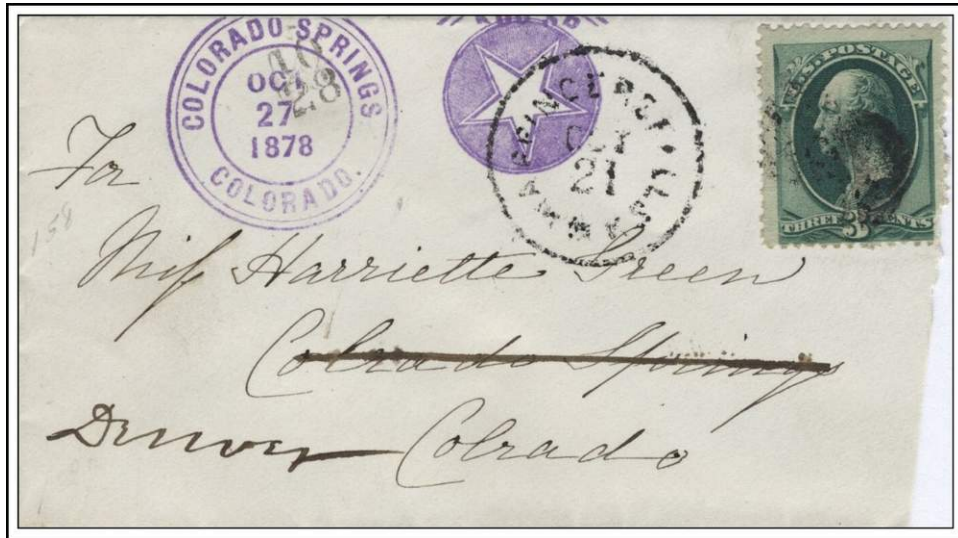 COLORADO SPRINGS
OCT
27
1878
COLORADO.
10
28
OCT
21
POSTAGE
THREE 3 CENTS
For
158
Miss Harriette Green
Colrado Springs
Denver Colrado